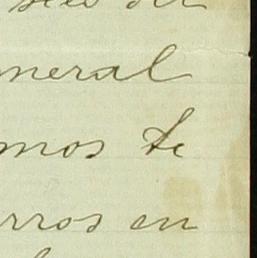 neral
mos te
rros en